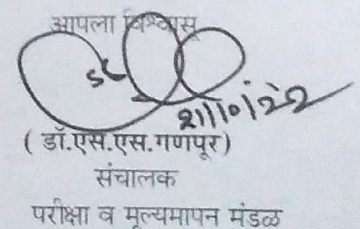 आपला विश्वासू
21/10/22
( डॉ.एस.एस.गणपूर)
संचालक
परीक्षा व मूल्यमापन मंडळ